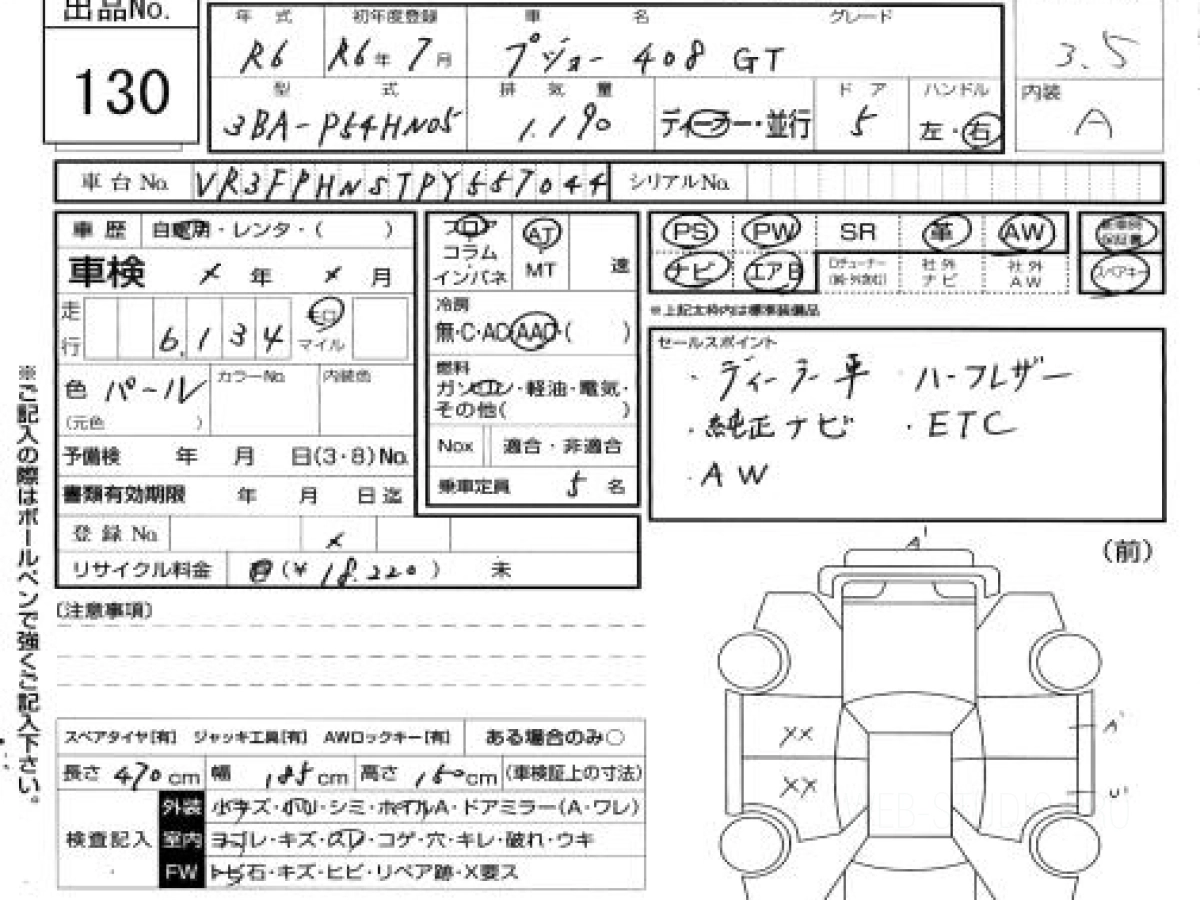 出品No.
130
年式 初年度登録 車名 グレード
R6 R6年 7月 プジョー 408 GT
3.5
型式 排気量 ドア ハンドル 内装
3BA-P54HN05 1.190 ディーラー・並行 5 左・右 A
車台No. VR3FPHNSTPY557044 シリアルNo.
車歴 自家用・レンタ・( )
車検 × 年 × 月
走行 6,134 キロ マイル
色 パール カラーNo. 内装色
(元色 )
予備検 年 月 日(3・8)No.
書類有効期限 年 月 日迄
登録No. ×
リサイクル料金 (¥ 18.220 ) 未
フロア コラム インパネ
AT MT 速
冷房
無・C・AC・AAC・( )
燃料
ガソリン・軽油・電気・
その他( )
Nox 適合・非適合
乗車定員 5 名
PS PW SR 革 AW
ナビ エアB 社外ナビ 社外AW スペアキー
※上記太枠内は標準装備品
セールスポイント
・ディーラー車 ・ハーフレザー
・純正ナビ ・ETC
・AW
※ご記入の際はボールペンで強くご記入下さい。
(注意事項)
(前)
A'
XX
A'
XX
U'
スペアタイヤ[有] ジャッキ工具[有] AWロックキー[有] ある場合のみ○
長さ 470 cm 幅 185 cm 高さ 150 cm (車検証上の寸法)
検査記入
外装 小キズ・凹・シミ・ホイルA・ドアミラー(A・ワレ)
室内 ヨゴレ・キズ・スレ・コゲ・穴・キレ・破れ・ウキ
FW トビ石・キズ・ヒビ・リペア跡・X要ス